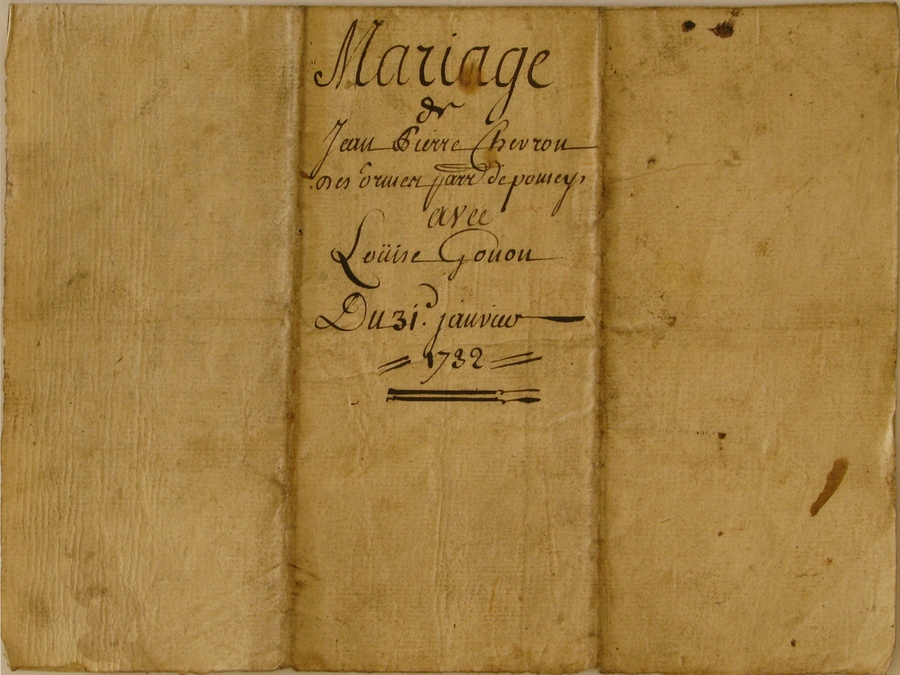 Mariage
de
Jean Pierre Chevron
des ormes parr de pomeys
avec
Loüise Gonon
Du 31e janvier
1732